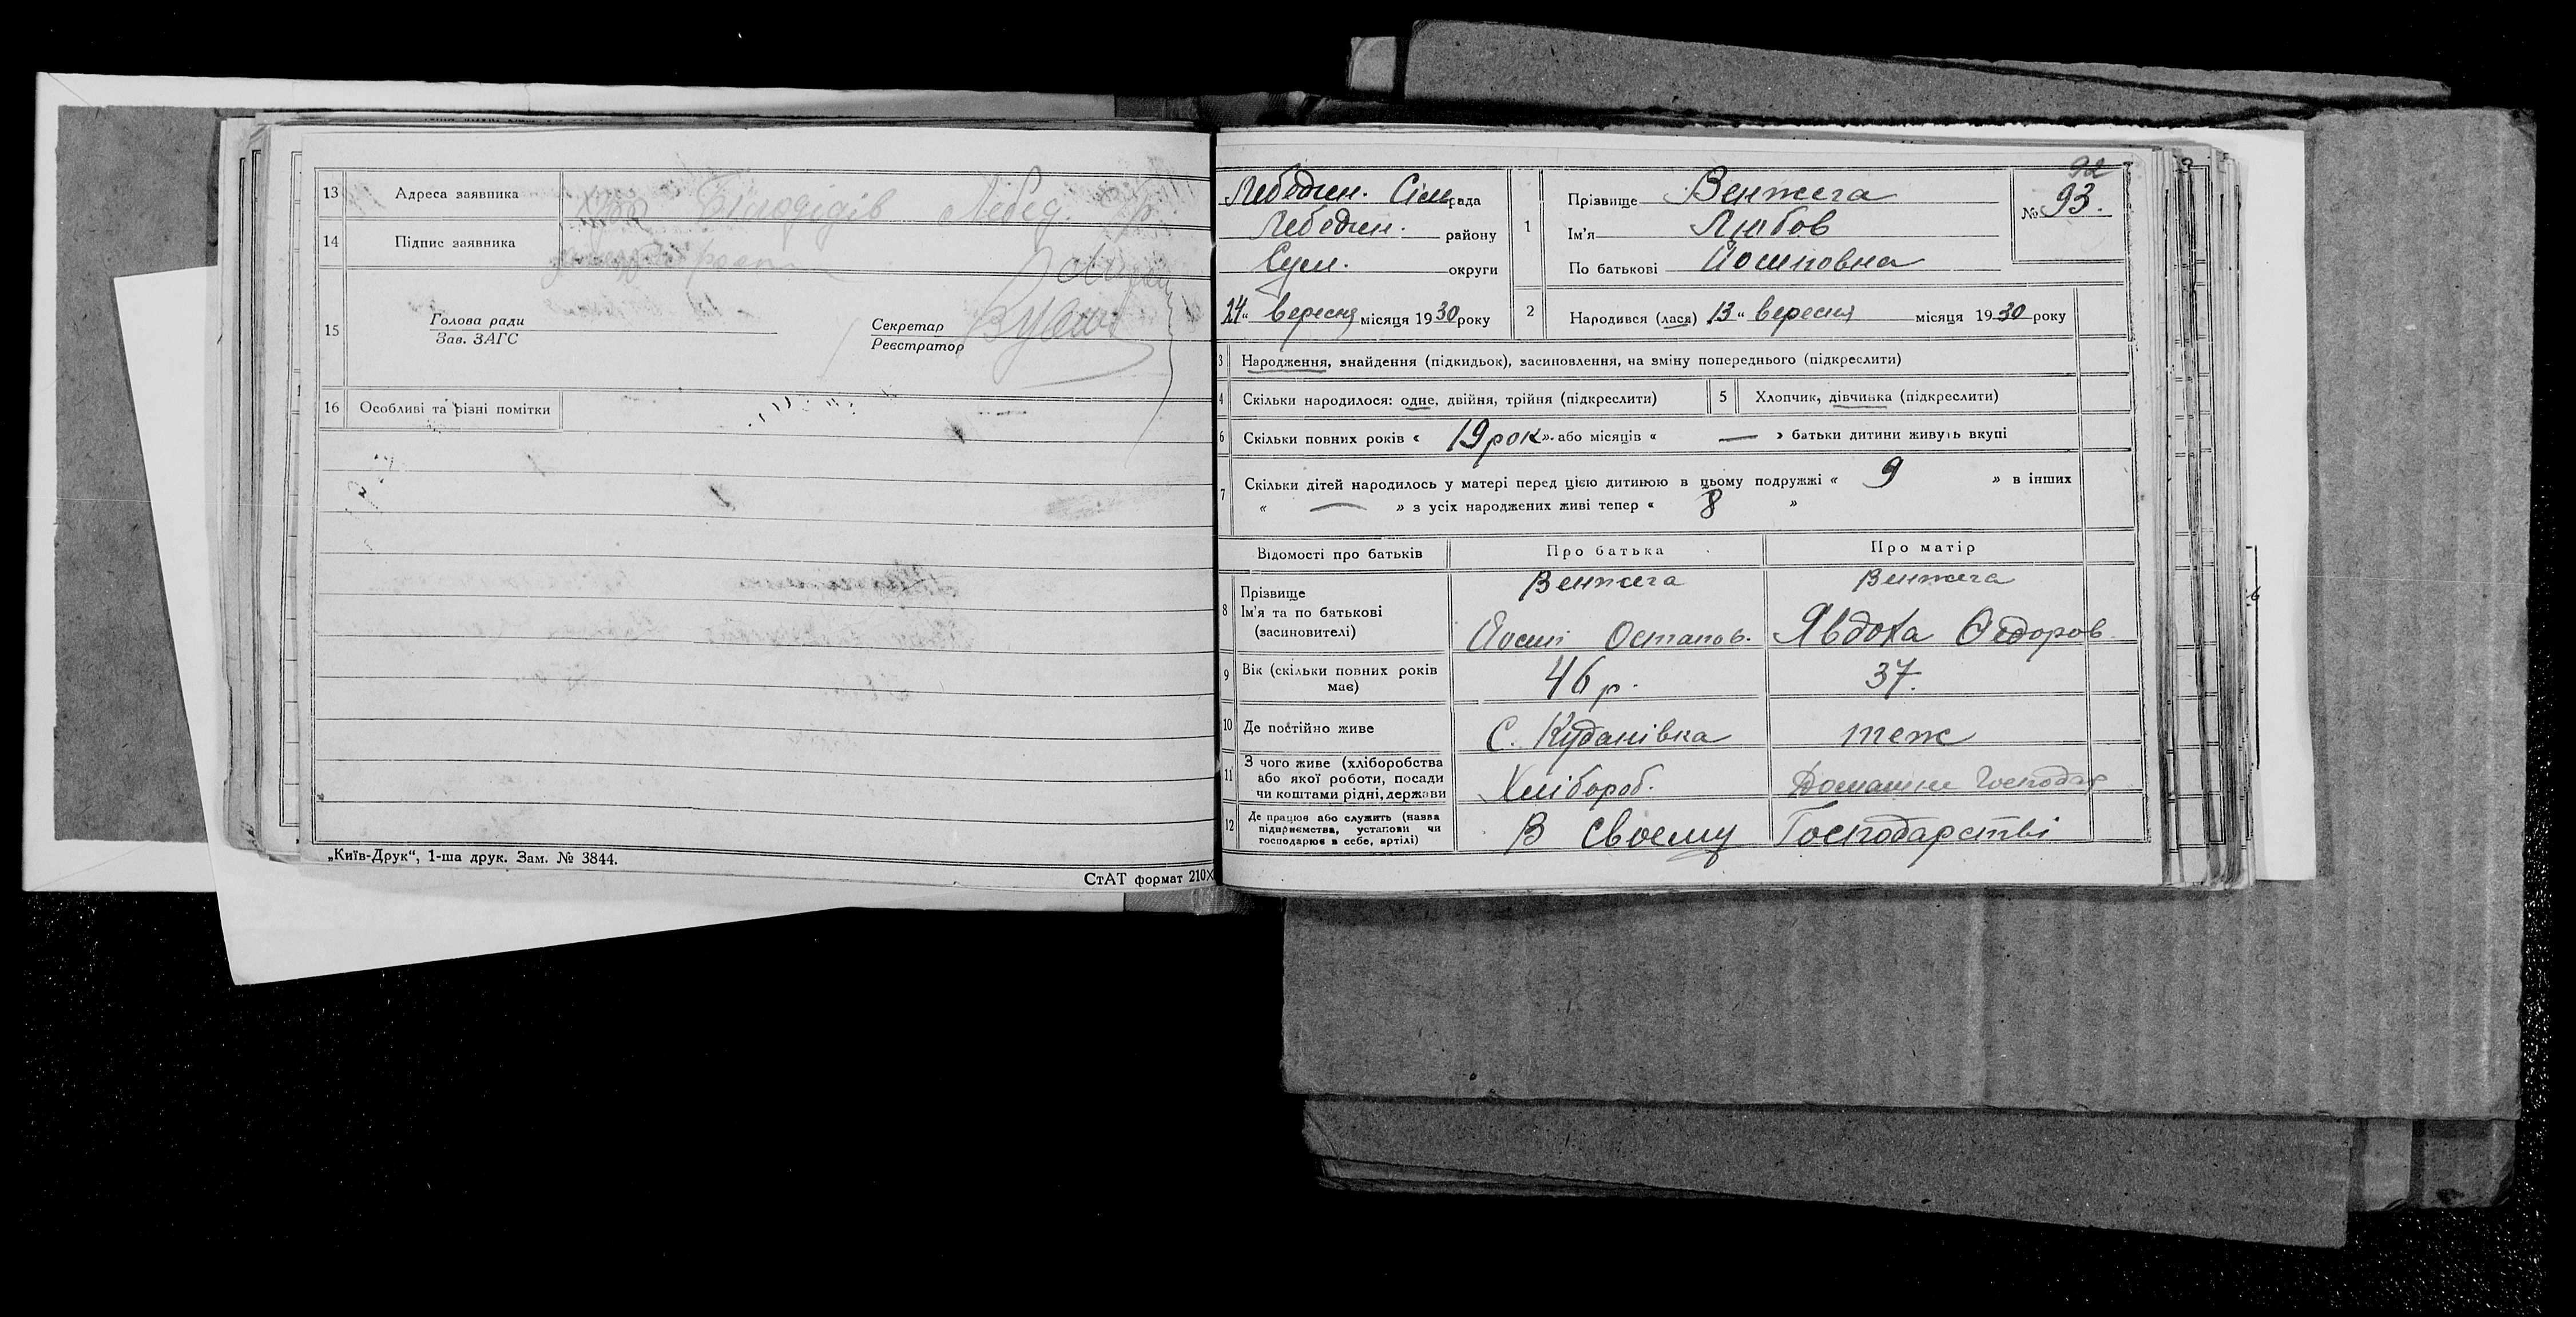 13 Адреса заявника хут Білодідів Лебед. р.
14 Підпис заявника
15 Голова ради
Зав. ЗАГС
Секретар
Реєстратор
16 Особливі та різні помітки —
„Київ-Друк“, 1-ша друк. Зам. № 3844.
СтАТ формат 210X
92
Лебедин. Сільрада
Лебедин. району
Сум. округи
14 „ вересня місяця 1930 року
1 Прізвище Венжега
Ім'я Любов
По батькові Йосиповна
№ 93.
2 Народився (лася) 13 „ вересня місяця 1930 року
3 Народження, знайдення (підкидьок), засиновлення, на зміну попереднього (підкреслити)
4 Скільки народилося: одне, двійня, трійня (підкреслити) 5 Хлопчик, дівчинка (підкреслити)
6 Скільки повних років « 19 рок » або місяців « — » батьки дитини живуть вкупі
7 Скільки дітей народилось у матері перед цією дитиною в цьому подружжі « 9 » в інших
« — » з усіх народжених живі тепер « 8 »
Відомості про батьків Про батька Про матір
8 Прізвище Венжега Венжега
Ім'я та по батькові
(засиновителі) Йосип Остапов. Явдоха Федоров
9 Вік (скільки повних років
має) 46 р. 37.
10 Де постійно живе С. Кудапівка теж
11 З чого живе (хліборобства
або якої роботи, посади
чи коштами рідні, держави Хлібороб. Домашне Господар
12 Де працює або служить (назва
підприємства, установи чи
господарює в себе, артілі) В своему Господарстві